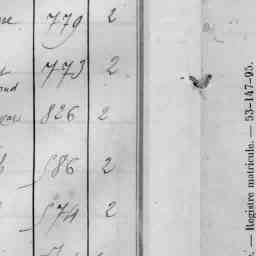 779 2
773 2
826 2
586 2
574 2
— Registre matricule. — 53-147-95.